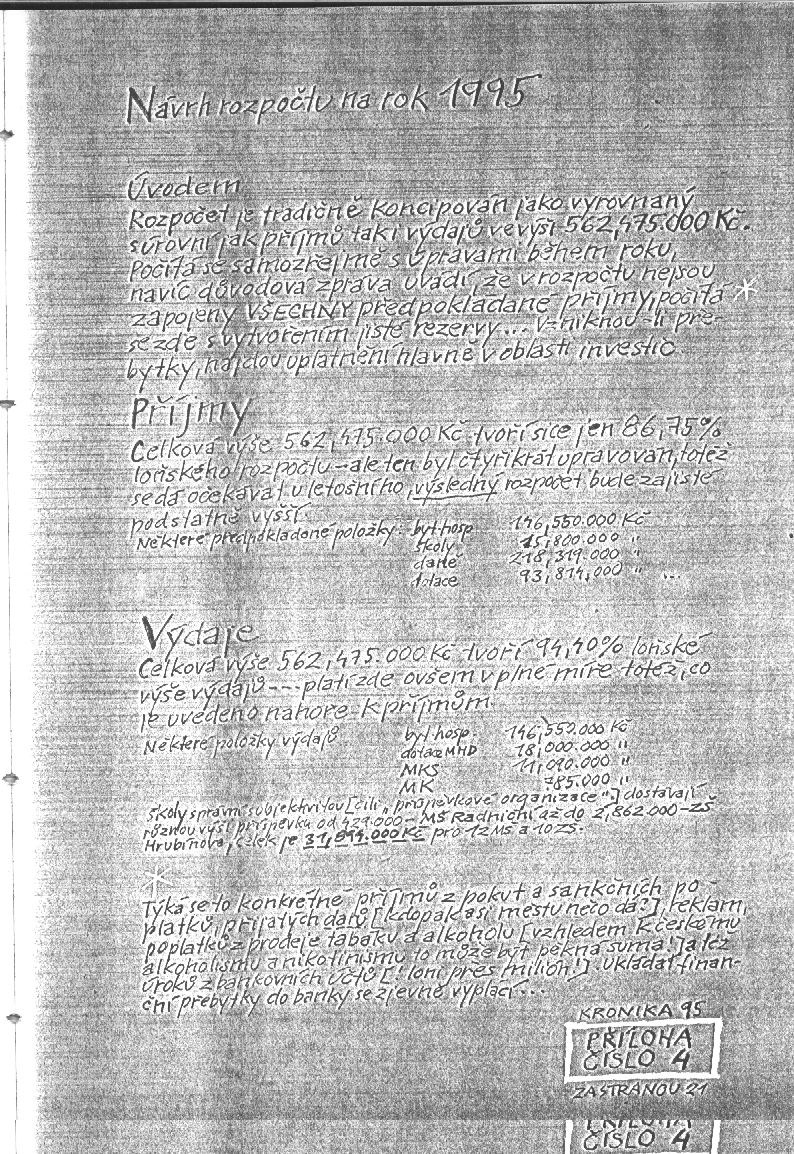 Návrh rozpočtu na rok 1995
Úvodem
Rozpočet je tradičně koncipován jako vyrovnaný
s úrovní jak příjmů tak i výdajů ve výši 562,475.000 Kč.
Počítá se samozřejmě s úpravami během roku,
navíc důvodová zpráva uvádí, že v rozpočtu nejsou
zapojeny VŠECHNY předpokládané příjmy, počítá *
se zde s vytvořením jisté rezervy... Vzniknou-li pře-
bytky, najdou uplatnění hlavně v oblasti investic.
Příjmy
Celková výše 562,475.000 Kč tvoří sice jen 86,75%
loňského rozpočtu – ale ten byl čtyřikrát upravován, totéž
se dá očekávat u letošního, výsledný rozpočet bude zajisté
podstatně vyšší.
Některé předpokládané položky: byt. hosp. 146,550.000 Kč
školy 15,800.000 "
daně 218,319.000 "
dotace 93,814,000 " ...
Výdaje
Celková výše 562,475.000 Kč tvoří 94,40% loňské
výše výdajů --- platí zde ovšem v plné míře totéž, co
je uvedeno nahoře k příjmům.
Některé položky výdajů byt. hosp. 146,550.000 Kč
dotace MHD 18,000.000 "
MKS 11,090.000 "
MK 785.000 "
Školy s právní subjektivitou [čili „příspěvkové organizace"] dostávají
různou výši příspěvku od 429.000 – MŠ Radniční až do 2,862.000 – ZŠ
Hrubínova, celek je 31,894.000 Kč pro 12 MŠ a 10 ZŠ.
*
Týká se to konkrétně příjmů z pokut a sankčních po-
platků, přijatých darů [kdopak asi městu něco dá?] reklam,
poplatků z prodeje tabáku a alkoholu [vzhledem k českému
alkoholismu a nikotinismu to může být pěkná suma!] a též
úroků z bankovních účtů [! loni přes milion!]. Ukládat finan-
ční přebytky do banky se zjevně vyplácí...
KRONIKA 95
PŘÍLOHA
ČÍSLO 4
ZA STRANOU 21
PŘÍLOHA
ČÍSLO 4